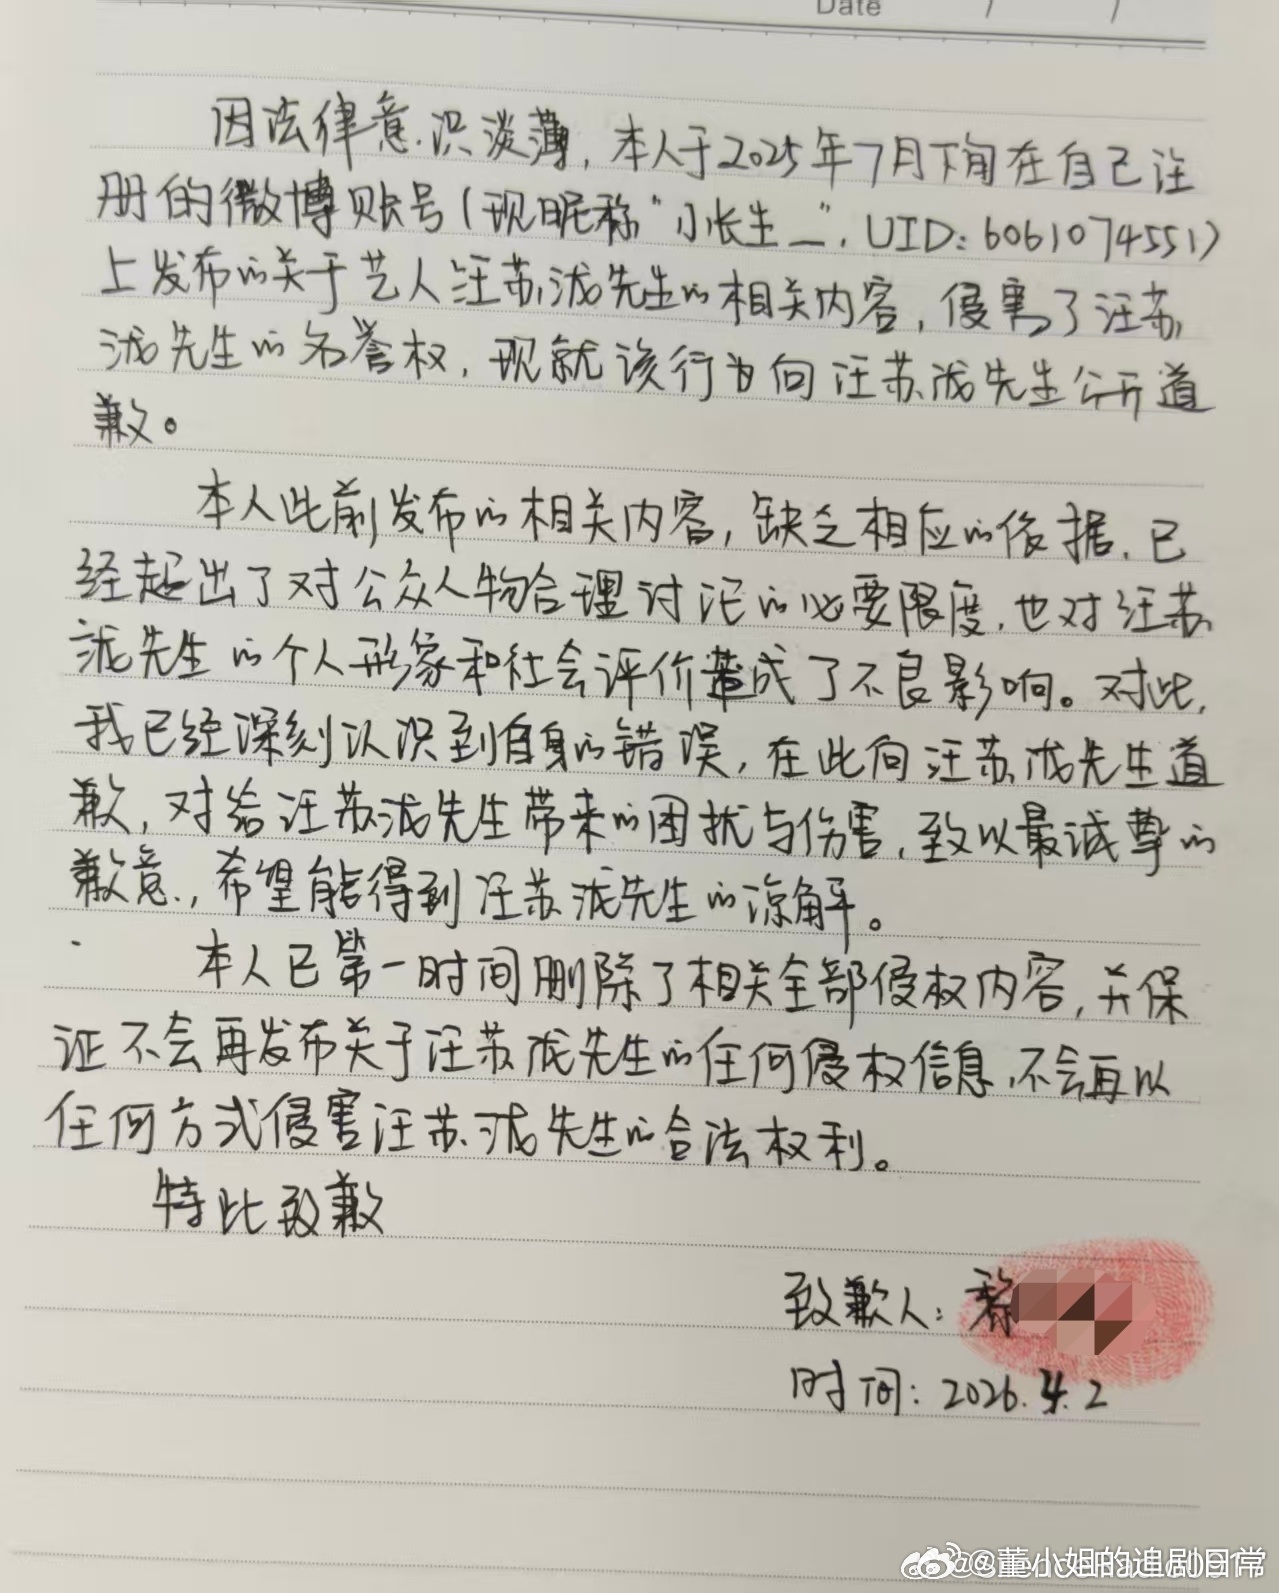 Date / /
因法律意识淡薄，本人于2025年7月下旬在自己注
册的微博账号（现昵称“小长生_”，UID：6061074551）
上发布的关于艺人汪苏泷先生的相关内容，侵害了汪苏
泷先生的名誉权，现就该行为向汪苏泷先生公开道
歉。
本人此前发布的相关内容，缺乏相应的依据，已
经超出了对公众人物合理讨论的必要限度，也对汪苏
泷先生的个人形象和社会评价造成了不良影响。对此，
我已经深刻认识到自身的错误，在此向汪苏泷先生道
歉，对给汪苏泷先生带来的困扰与伤害，致以最诚挚的
歉意，希望能得到汪苏泷先生的谅解。
本人已第一时间删除了相关全部侵权内容，并保
证不会再发布关于汪苏泷先生的任何侵权信息，不会再以
任何方式侵害汪苏泷先生的合法权利。
特此致歉
致歉人：
时间：2026.4.2
@董小姐的追剧日常